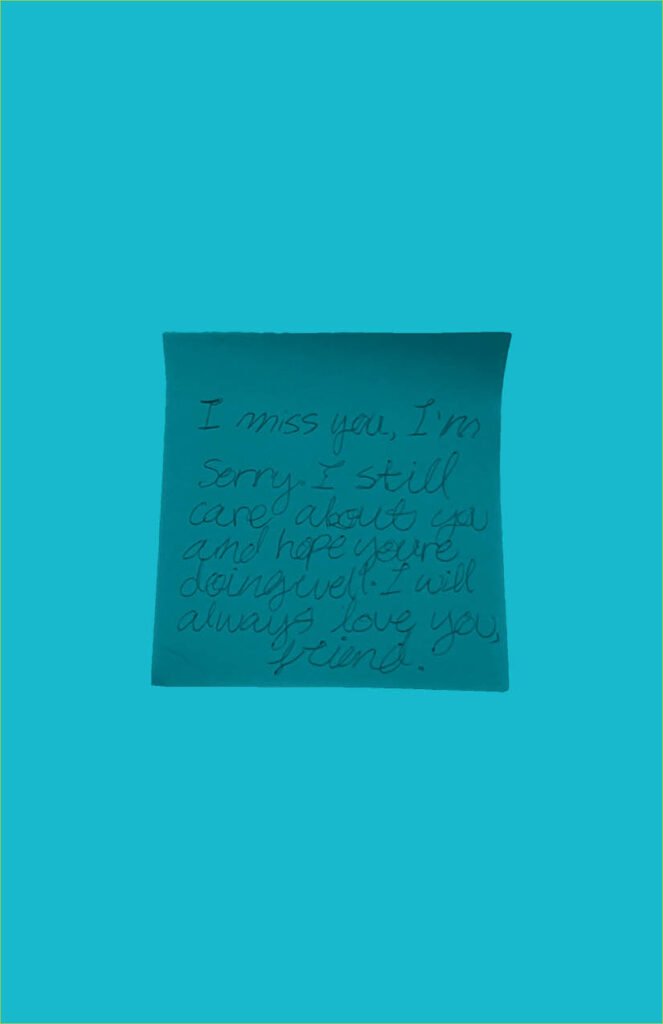 I miss you, I'm
Sorry. I still
care about you
and hope you're
doing well. I will
always love you,
friend.